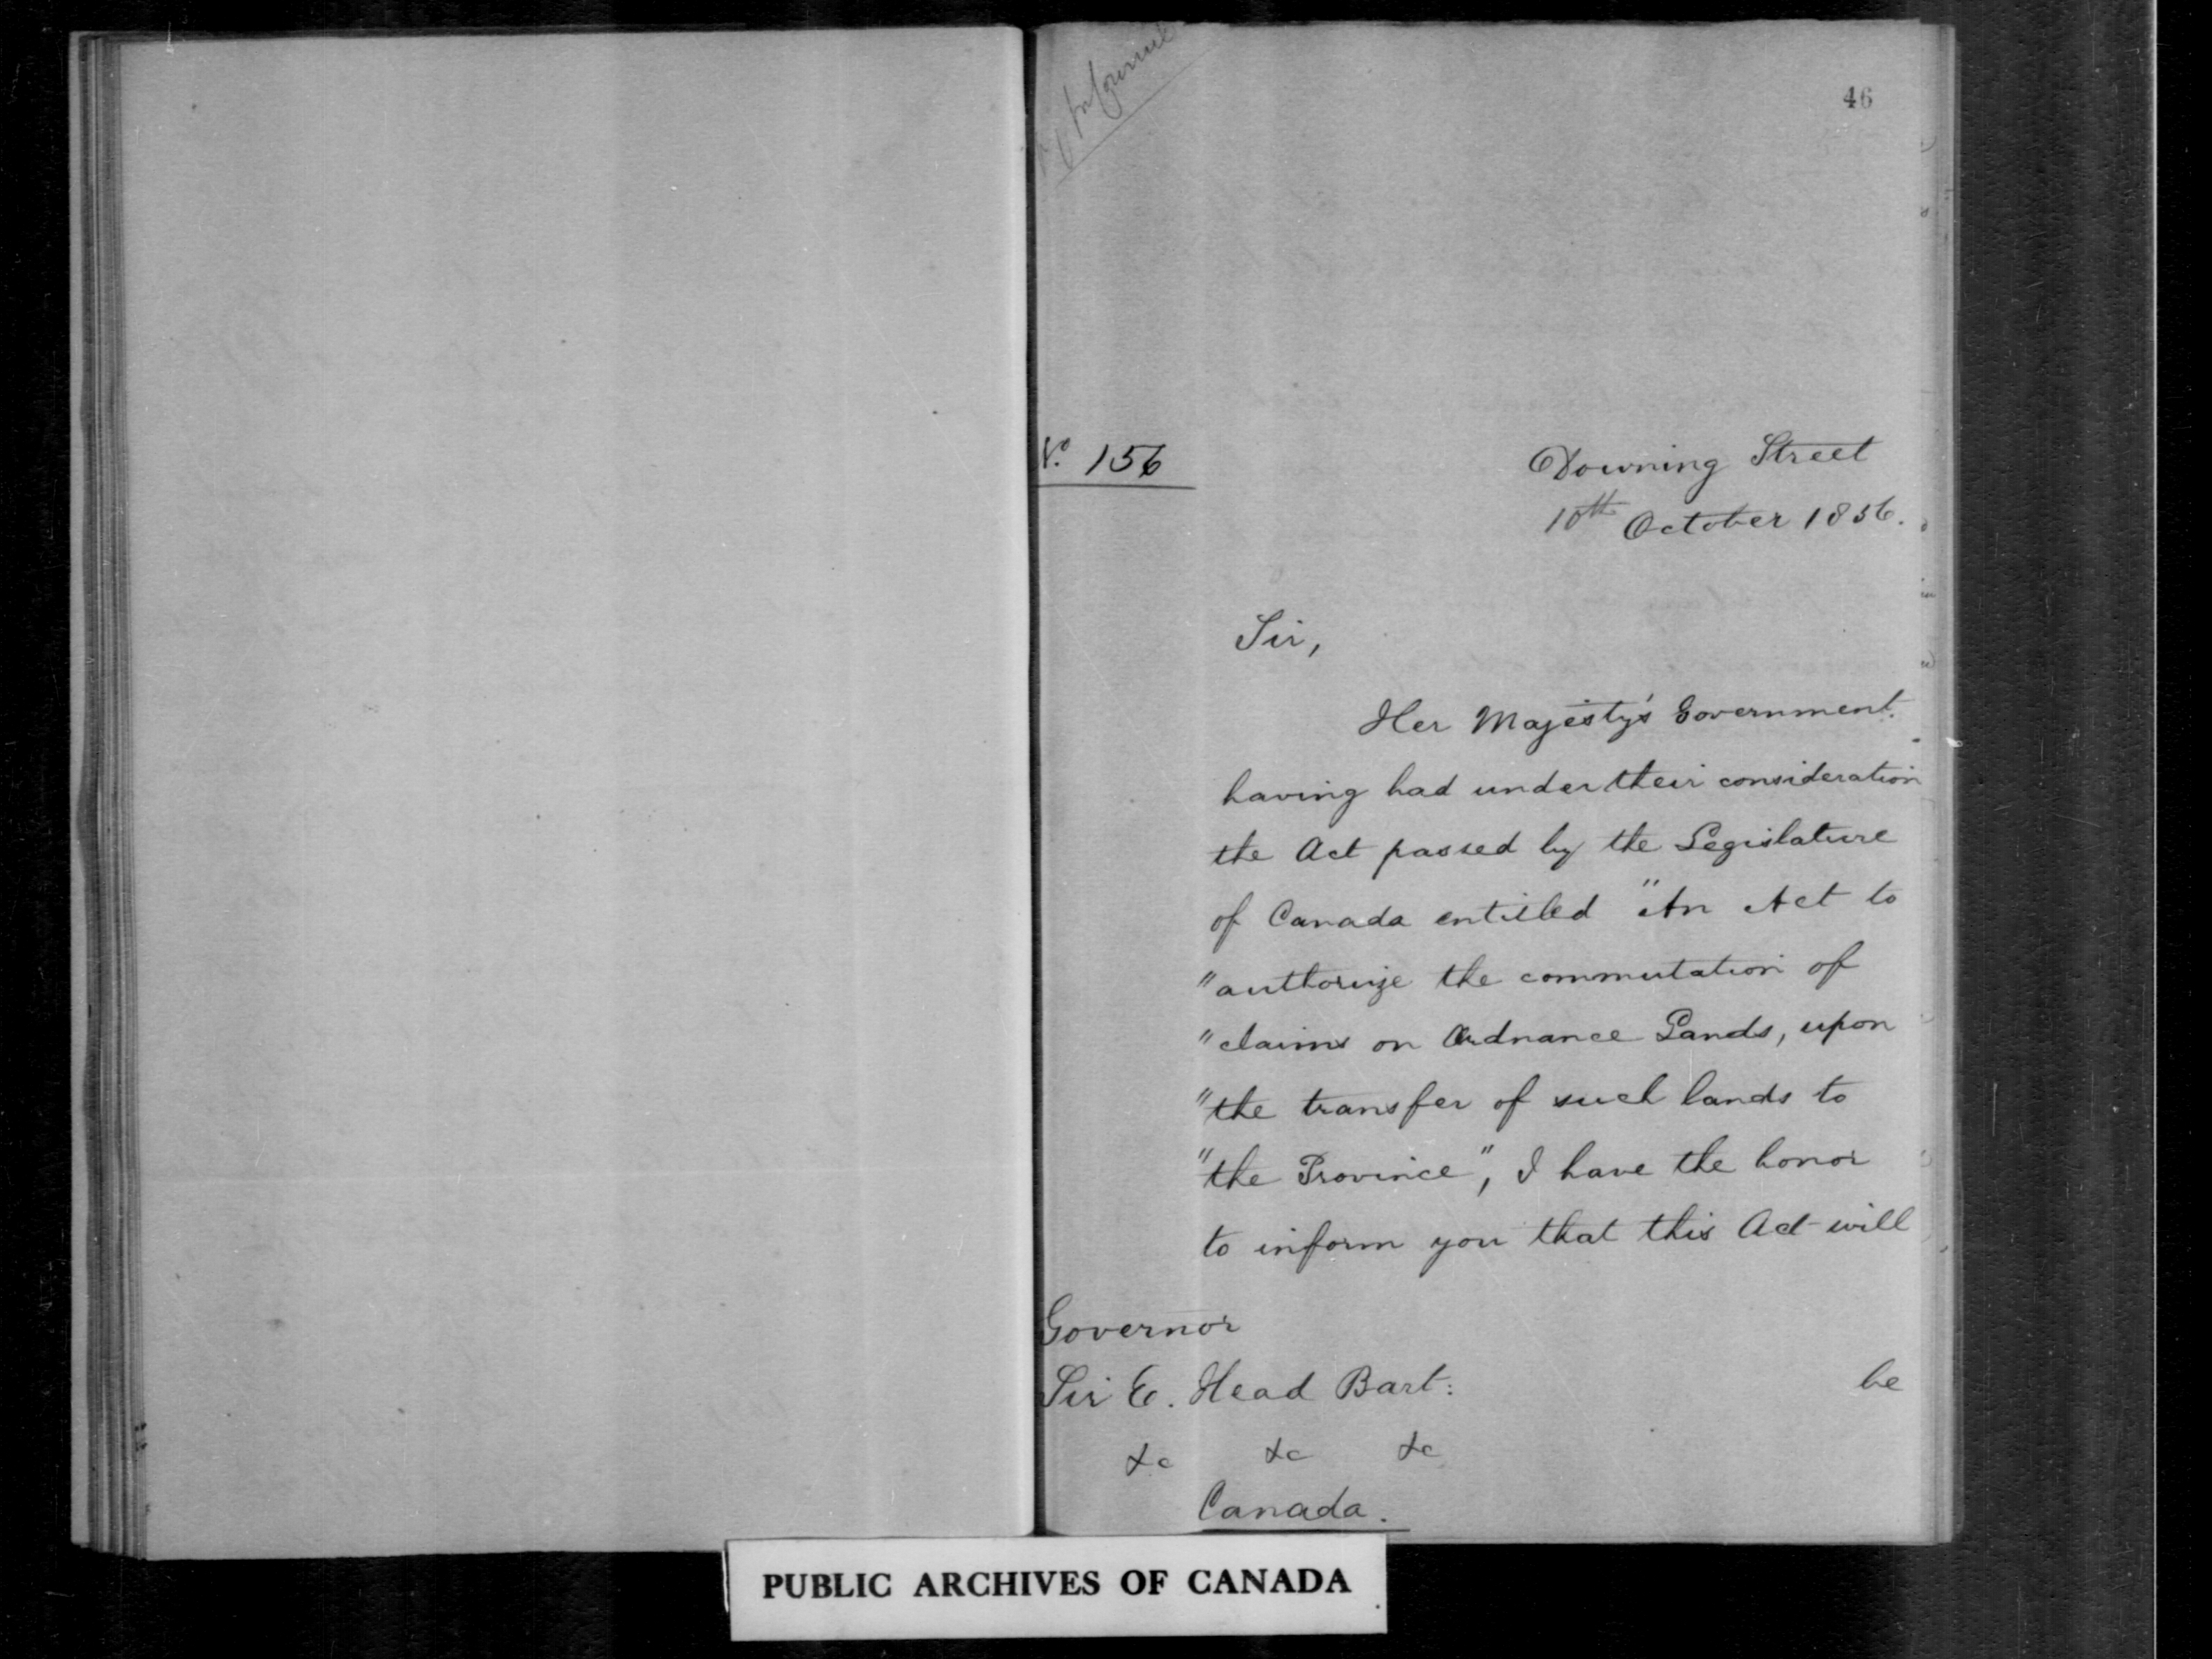 46
No. 156
Downing Street
10th October 1856.
Sir,
Her Majesty's Government
having had under their consideration
the Act passed by the Legislature
of Canada entitled "An Act to
"authorize the commutation of
"claims on Ordnance Lands, upon
"the transfer of such lands to
"the Province", I have the honor
to inform you that this Act will
be
Governor
Sir E. Head Bart:
&c &c &c
Canada.
PUBLIC ARCHIVES OF CANADA